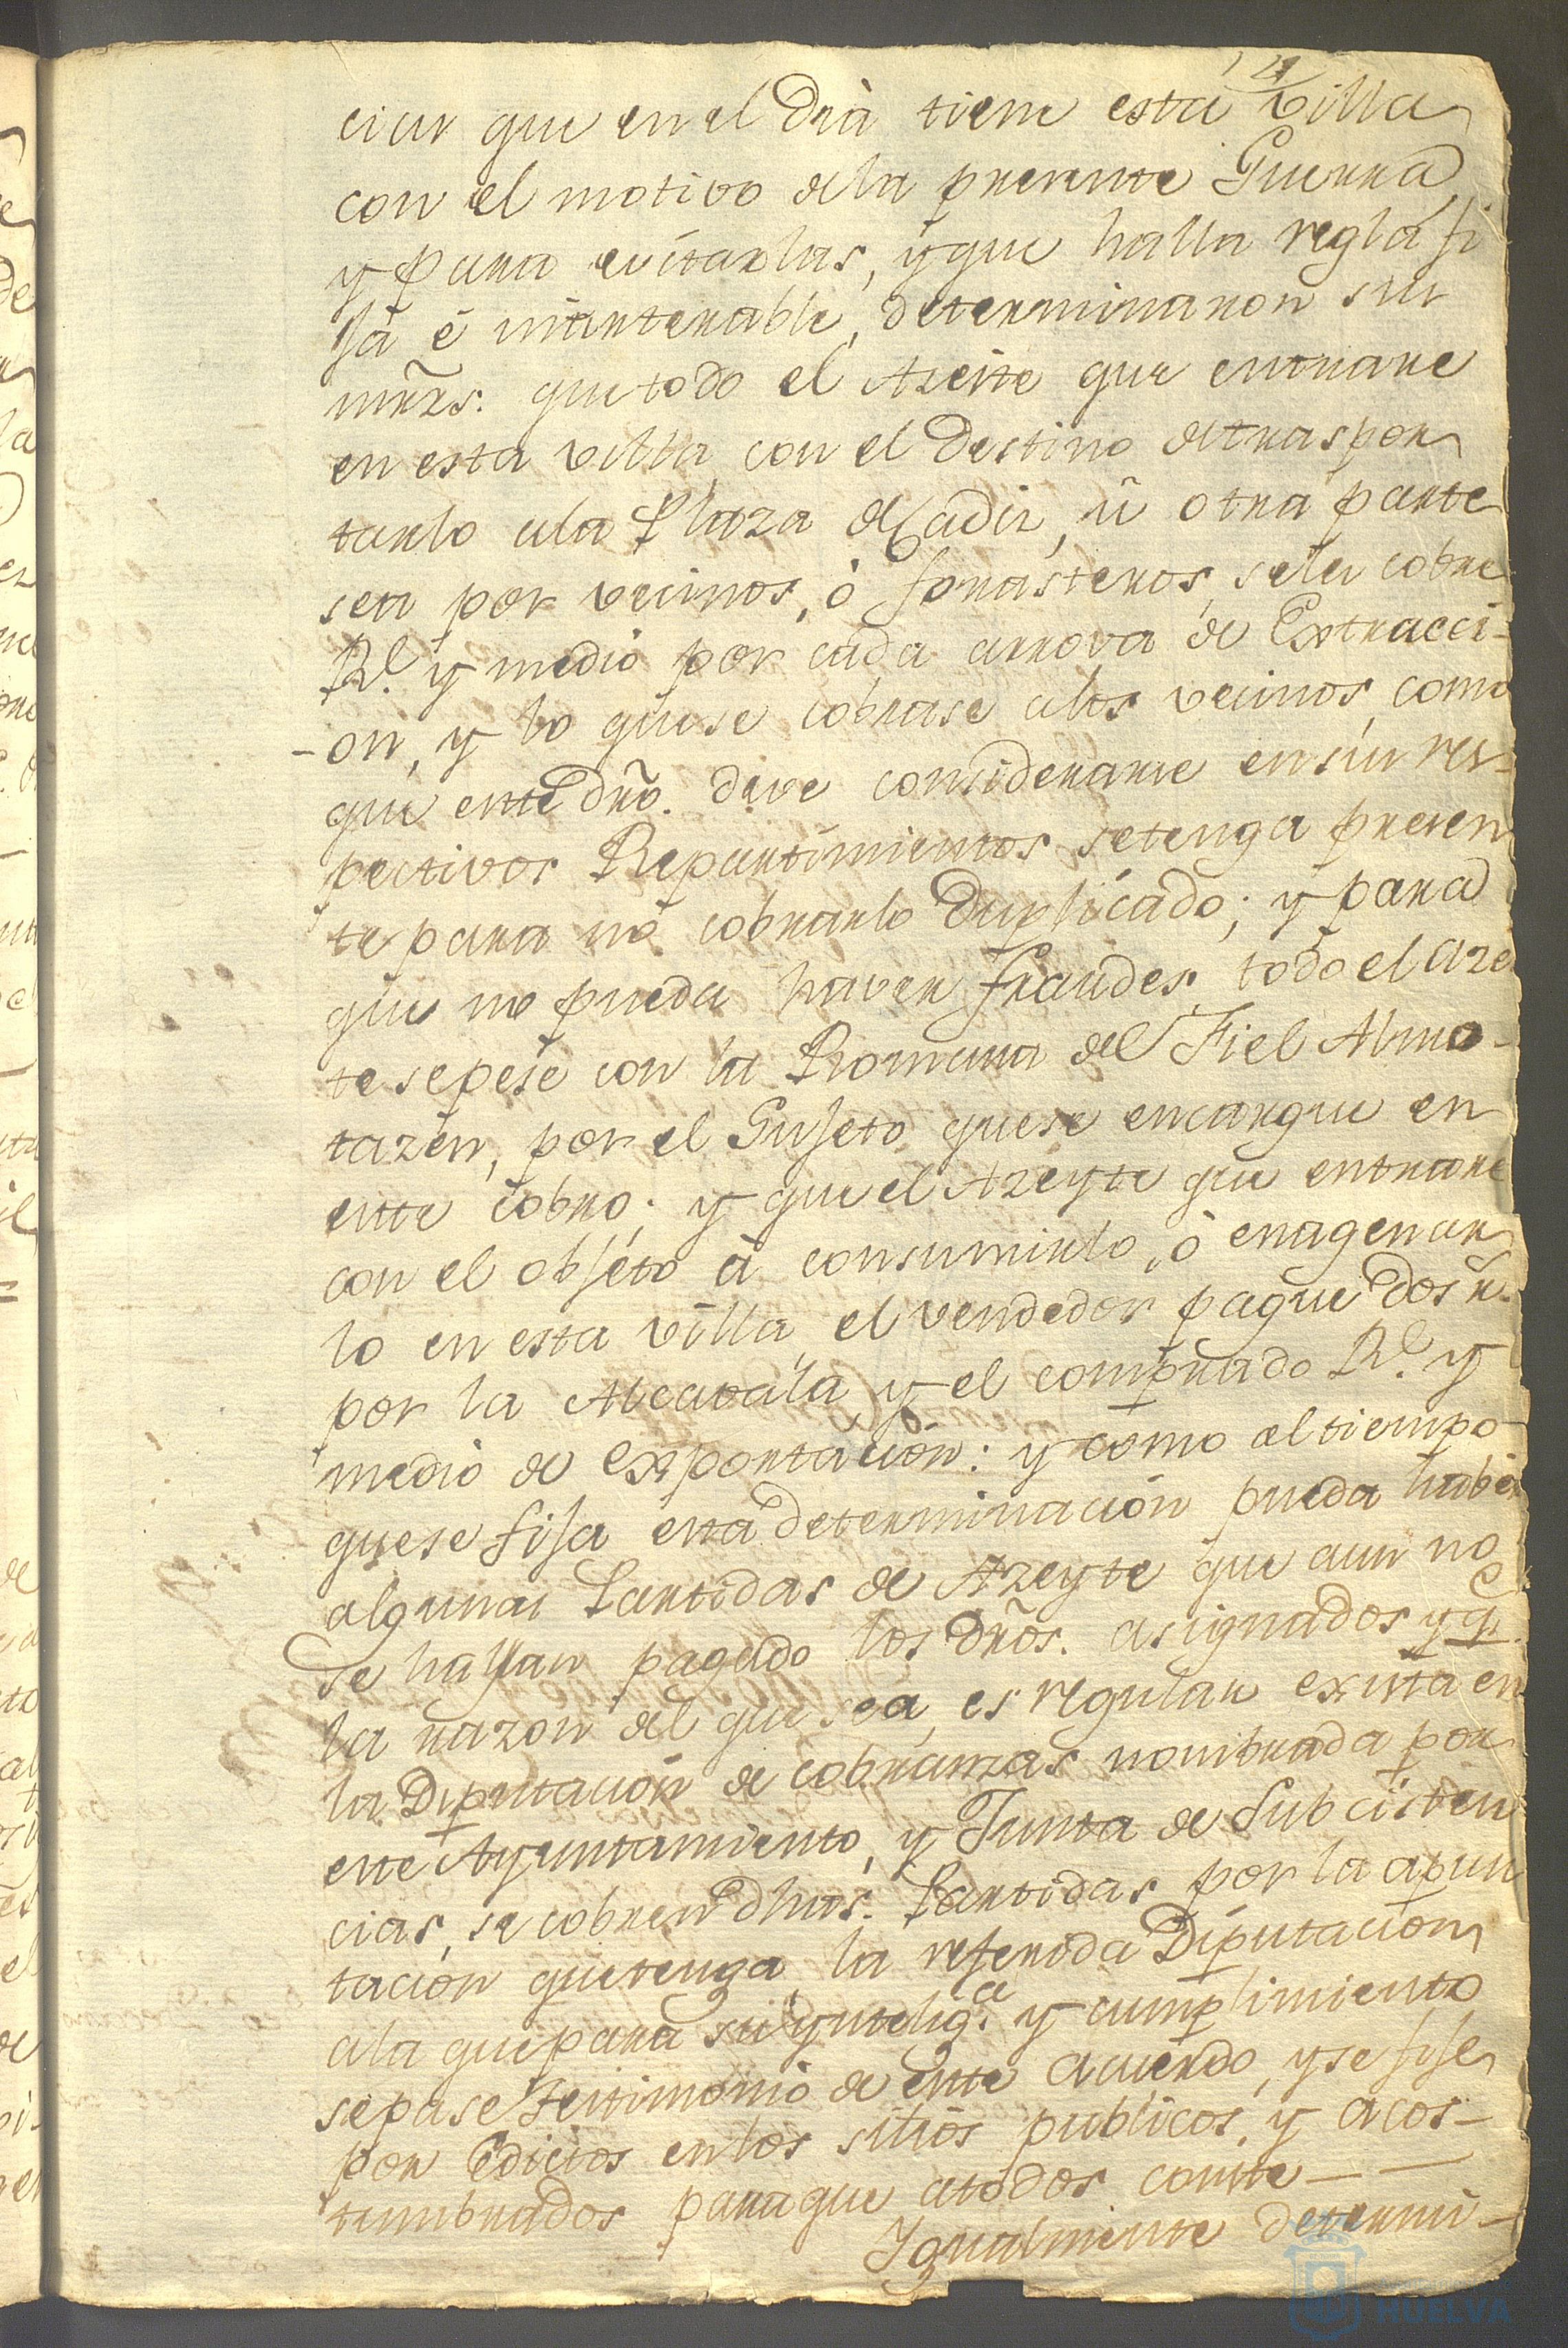 14
cias que en el Dia tiene esta Villa
con el motivo dela presente Guerra
y para evitarlas, y que halla regla fi
ja é inalterable, determinaron sus
mrzs. que todo el Azeite que entrare
en esta villa con el Destino detraspor
tarlo ala Plaza de Cadiz, ü otra parte
sea por vecinos, ò forasteros, sele cobre
Rl. y medio por cada arrova de Extracci-
-on, y lo que se cobrase alos vecinos, como
que este dro. deve considerarse en sus res-
pectivos Repartimientos se tenga presen
te para no cobrarlo Duplicado; y para
que no pueda haver fraudes todo el Aze
te sepese con la Romana del Fiel Almo-
tazén, por el Sujeto quese encargue en
este cobro; y que el Azeyte que entrare
con el objéto à consumirlo, ò enagenar
lo en esta villa, el vendedor pague dos r.
por la Alcavala, y el comprado Rl. y
medio de exportación: y cómo al tiempo
quese fija esta Determinación pueda haber
algunas Partidas de Azeyte que aun no
se hallan pagado los Dros. asignados y q.
la razon del que sea, es regular exista en
la Diputación de cobranzas nombrada por
este Ayuntamiento, y Junta de Subcisten
cias, se cobren dhas. Partidas por la apun
tación que tenga la referida Diputacion
ala que para su yntelig.a y cumplimiento
sepase Testimonio de este acuerdo, y se fije
por Edictos en los sitios publicos, y acos-
tumbrados para que atodos conste - -
Ygualmente determi-
HUELVA